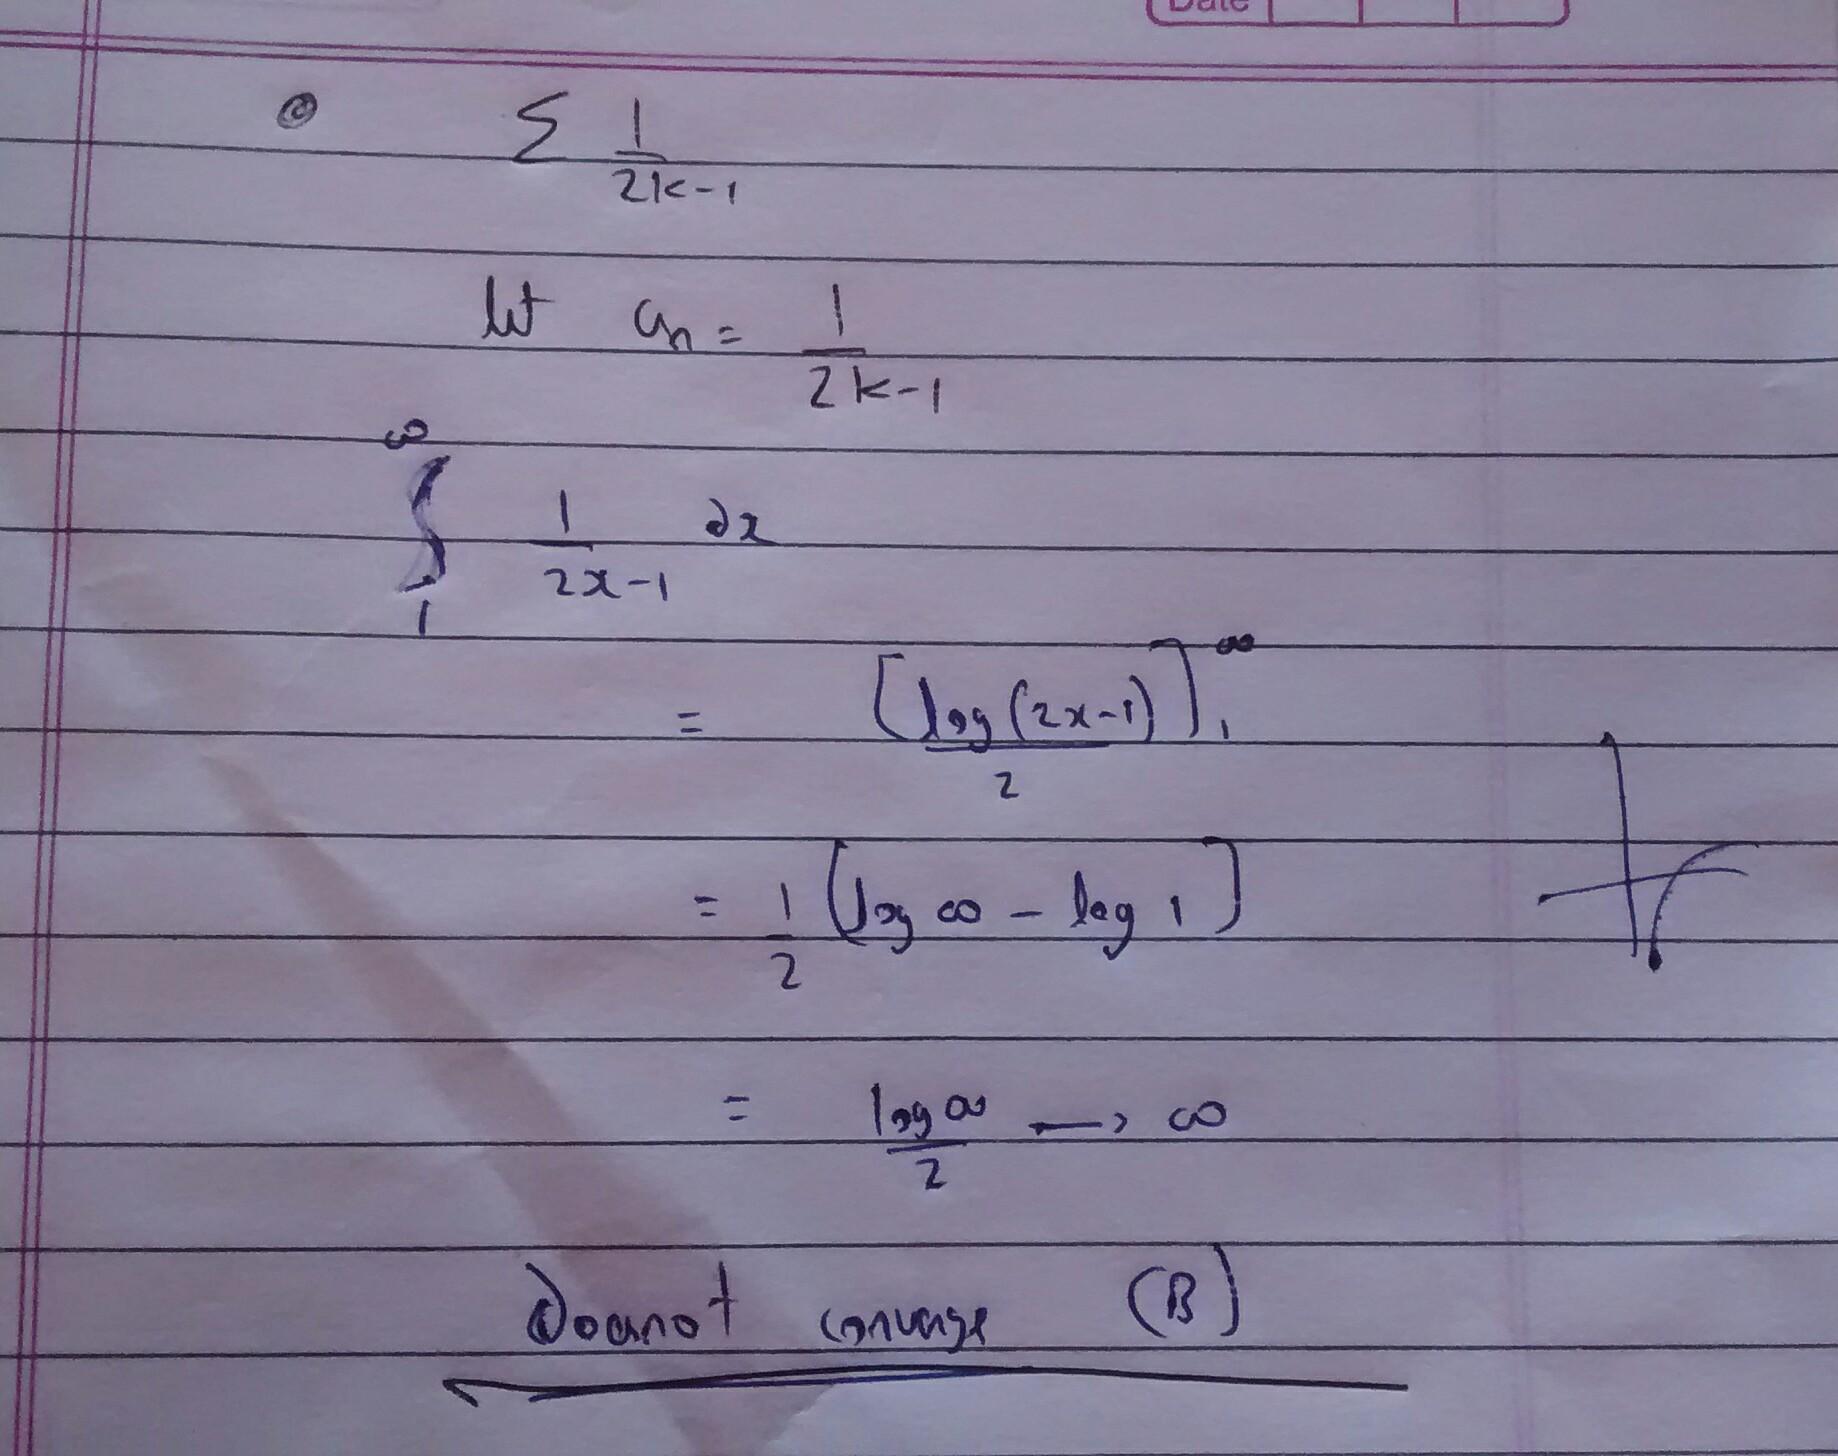 Date
Σ 1/(2k-1)
let an = 1/(2k-1)
∫₁^∞ 1/(2x-1) dx
= [log(2x-1)/2]₁^∞
= 1/2 [log ∞ - log 1]
= log ∞/2 → ∞
Doesnot converge (B)